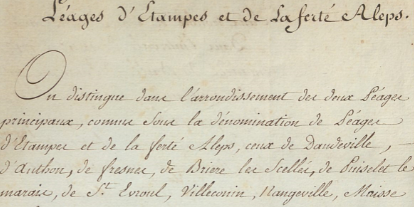 Péages d'Etampes et de La ferté Aleps.
On distingue dans l'arrondissement des deux Péages
principaux, connus sous la dénomination de Péages
d'Etampes et de la ferté Aleps, ceux de Dandeville,
d'Authon, de fresnes, de Briere les Scellés, de Puiselet le
marais, de St. Evroul, Villeconin, Mangeville, Maisse